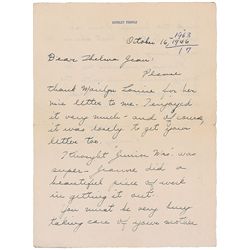 SHIRLEY TEMPLE
-1963
October 16, 1946
17
Dear Thelma Jean:
Please
thank Marilyn Louise for her
nice letter to me. I enjoyed
it very much - and of course,
it was lovely to get your
letter too.
I thought "Junior Miss" was
super - Jeanne did a
beautiful piece of work
in getting it out.
You must be very busy
taking care of your sister